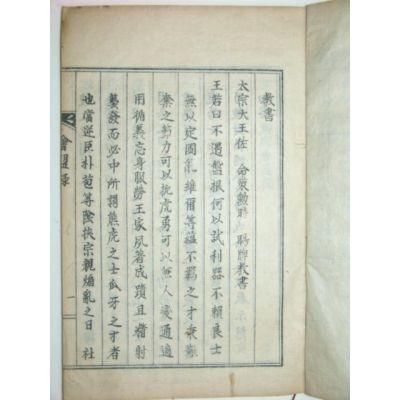 教書
太宗大王佐 命策勳時 賜牌教書
王若曰不遇盤根何以試利器不賴良士
無以定國亂維爾等蘊不羈之才秉難
奪之節力可以扼虎勇可以兼人變通適
用循義忘身服勞王家夙著成蹟且精射
藝發而必中所謂熊虎之士爪牙之才者
也當逆臣朴苞等陰挾宗親煽亂之日 社
會盟錄